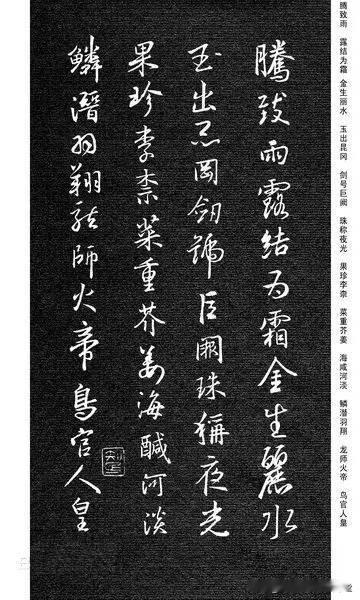 腾致雨 露结为霜 金生丽水 玉出昆冈 剑号巨阙 珠称夜光 果珍李柰 菜重芥姜 海咸河淡 鳞潜羽翔 龙师火帝 鸟官人皇
騰致雨露結为霜金生麗水
玉出崑岡劒號巨闕珠稱夜光
果珍李柰菜重芥姜海鹹河淡
鱗潛羽翔龍師火帝鳥官人皇